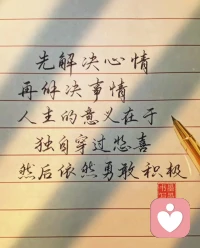 先解决心情
再解决事情
人生的意义在于
独自穿过悲喜
然后依然勇敢积极